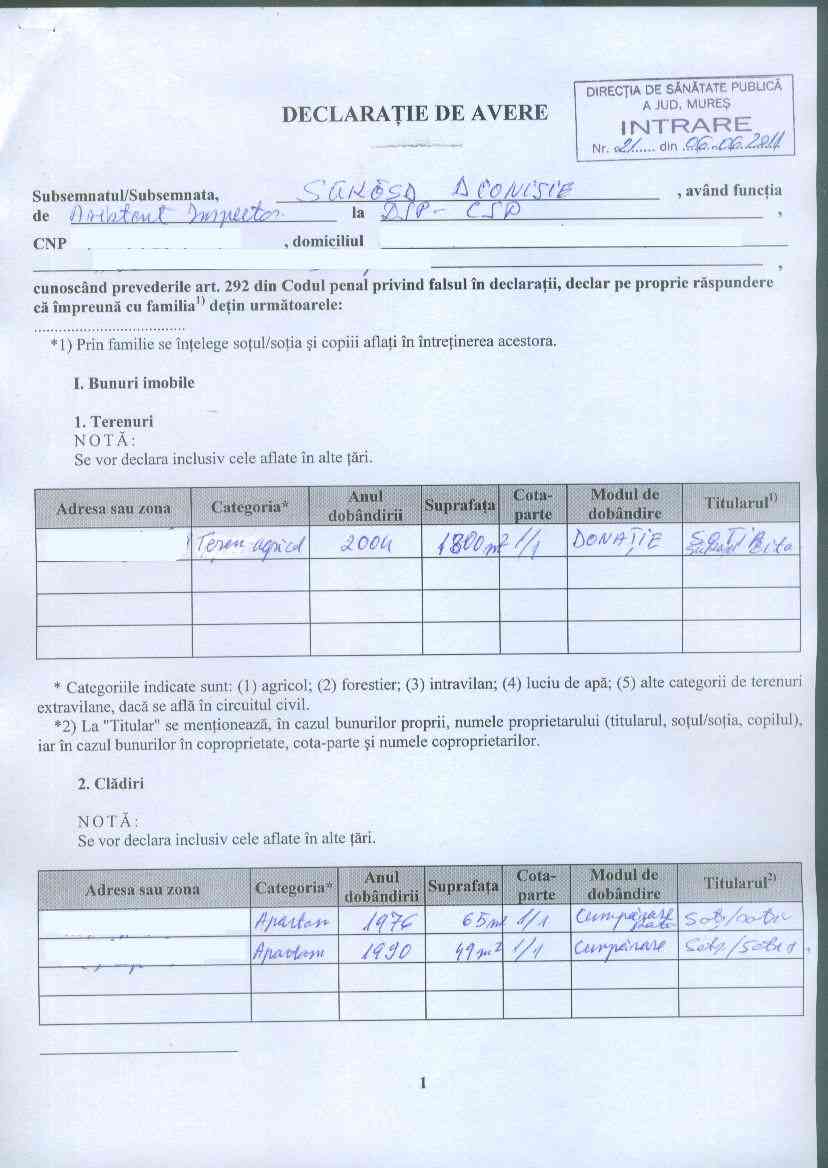 DECLARAȚIE DE AVERE
DIRECȚIA DE SĂNĂTATE PUBLICĂ
A JUD. MUREȘ
INTRARE
Nr. 21 din 06.06.2011
Subsemnatul/Subsemnata, , având funcția
de Asistent Inspector la DSP - CSP ,
CNP , domiciliul
,
cunoscând prevederile art. 292 din Codul penal privind falsul în declarații, declar pe proprie răspundere
că împreună cu familia1) dețin următoarele:
......................................
*1) Prin familie se înțelege soțul/soția și copiii aflați în întreținerea acestora.
I. Bunuri imobile
1. Terenuri
NOTĂ:
Se vor declara inclusiv cele aflate în alte țări.
Adresa sau zona Categoria* Anul dobândirii Suprafața Cota-parte Modul de dobândire Titularul1)
Teren agricol 2004 1800 m2 1/1 DONAȚIE
* Categoriile indicate sunt: (1) agricol; (2) forestier; (3) intravilan; (4) luciu de apă; (5) alte categorii de terenuri
extravilane, dacă se află în circuitul civil.
*2) La "Titular" se menționează, în cazul bunurilor proprii, numele proprietarului (titularul, soțul/soția, copilul),
iar în cazul bunurilor în coproprietate, cota-parte și numele coproprietarilor.
2. Clădiri
NOTĂ:
Se vor declara inclusiv cele aflate în alte țări.
Adresa sau zona Categoria* Anul dobândirii Suprafața Cota-parte Modul de dobândire Titularul2)
Apartam 1976 65 m2 1/1 Cumpărare
Apartam 1990 49 m2 1/1 Cumpărare
1